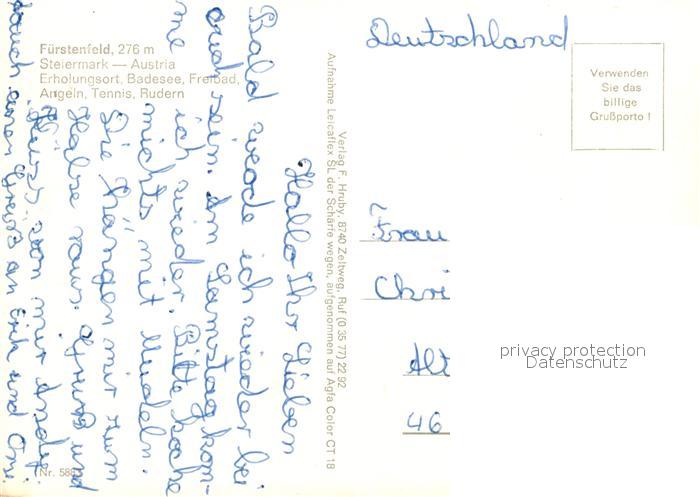 Fürstenfeld, 276 m
Steiermark — Austria
Erholungsort, Badesee, Freibad,
Angeln, Tennis, Rudern
Hallo Ihr Lieben
Bald werde ich wieder bei
euch sein. Am Samstag kom-
me ich wieder. Bitte koche
nichts mit Nudeln.
Die hängen mir zum
Halse raus. Gruß und
von mir
auch einen Gruß an Erik und
Nr. 588
Verlag F. Hruby, 8740 Zeltweg, Ruf (0 35 77) 22 92
Aufnahme Leicaflex SL der Schärfe wegen, aufgenommen auf Agfa Color CT 18
Deutschland
Verwenden
Sie das
billige
Grußporto !
Frau
Chri
Alt
46
privacy protection
Datenschutz